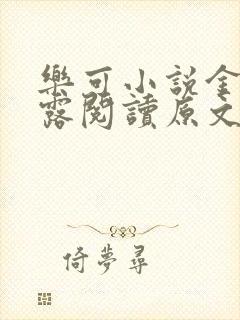 樂可小說金
露閱讀原文
倚夢尋